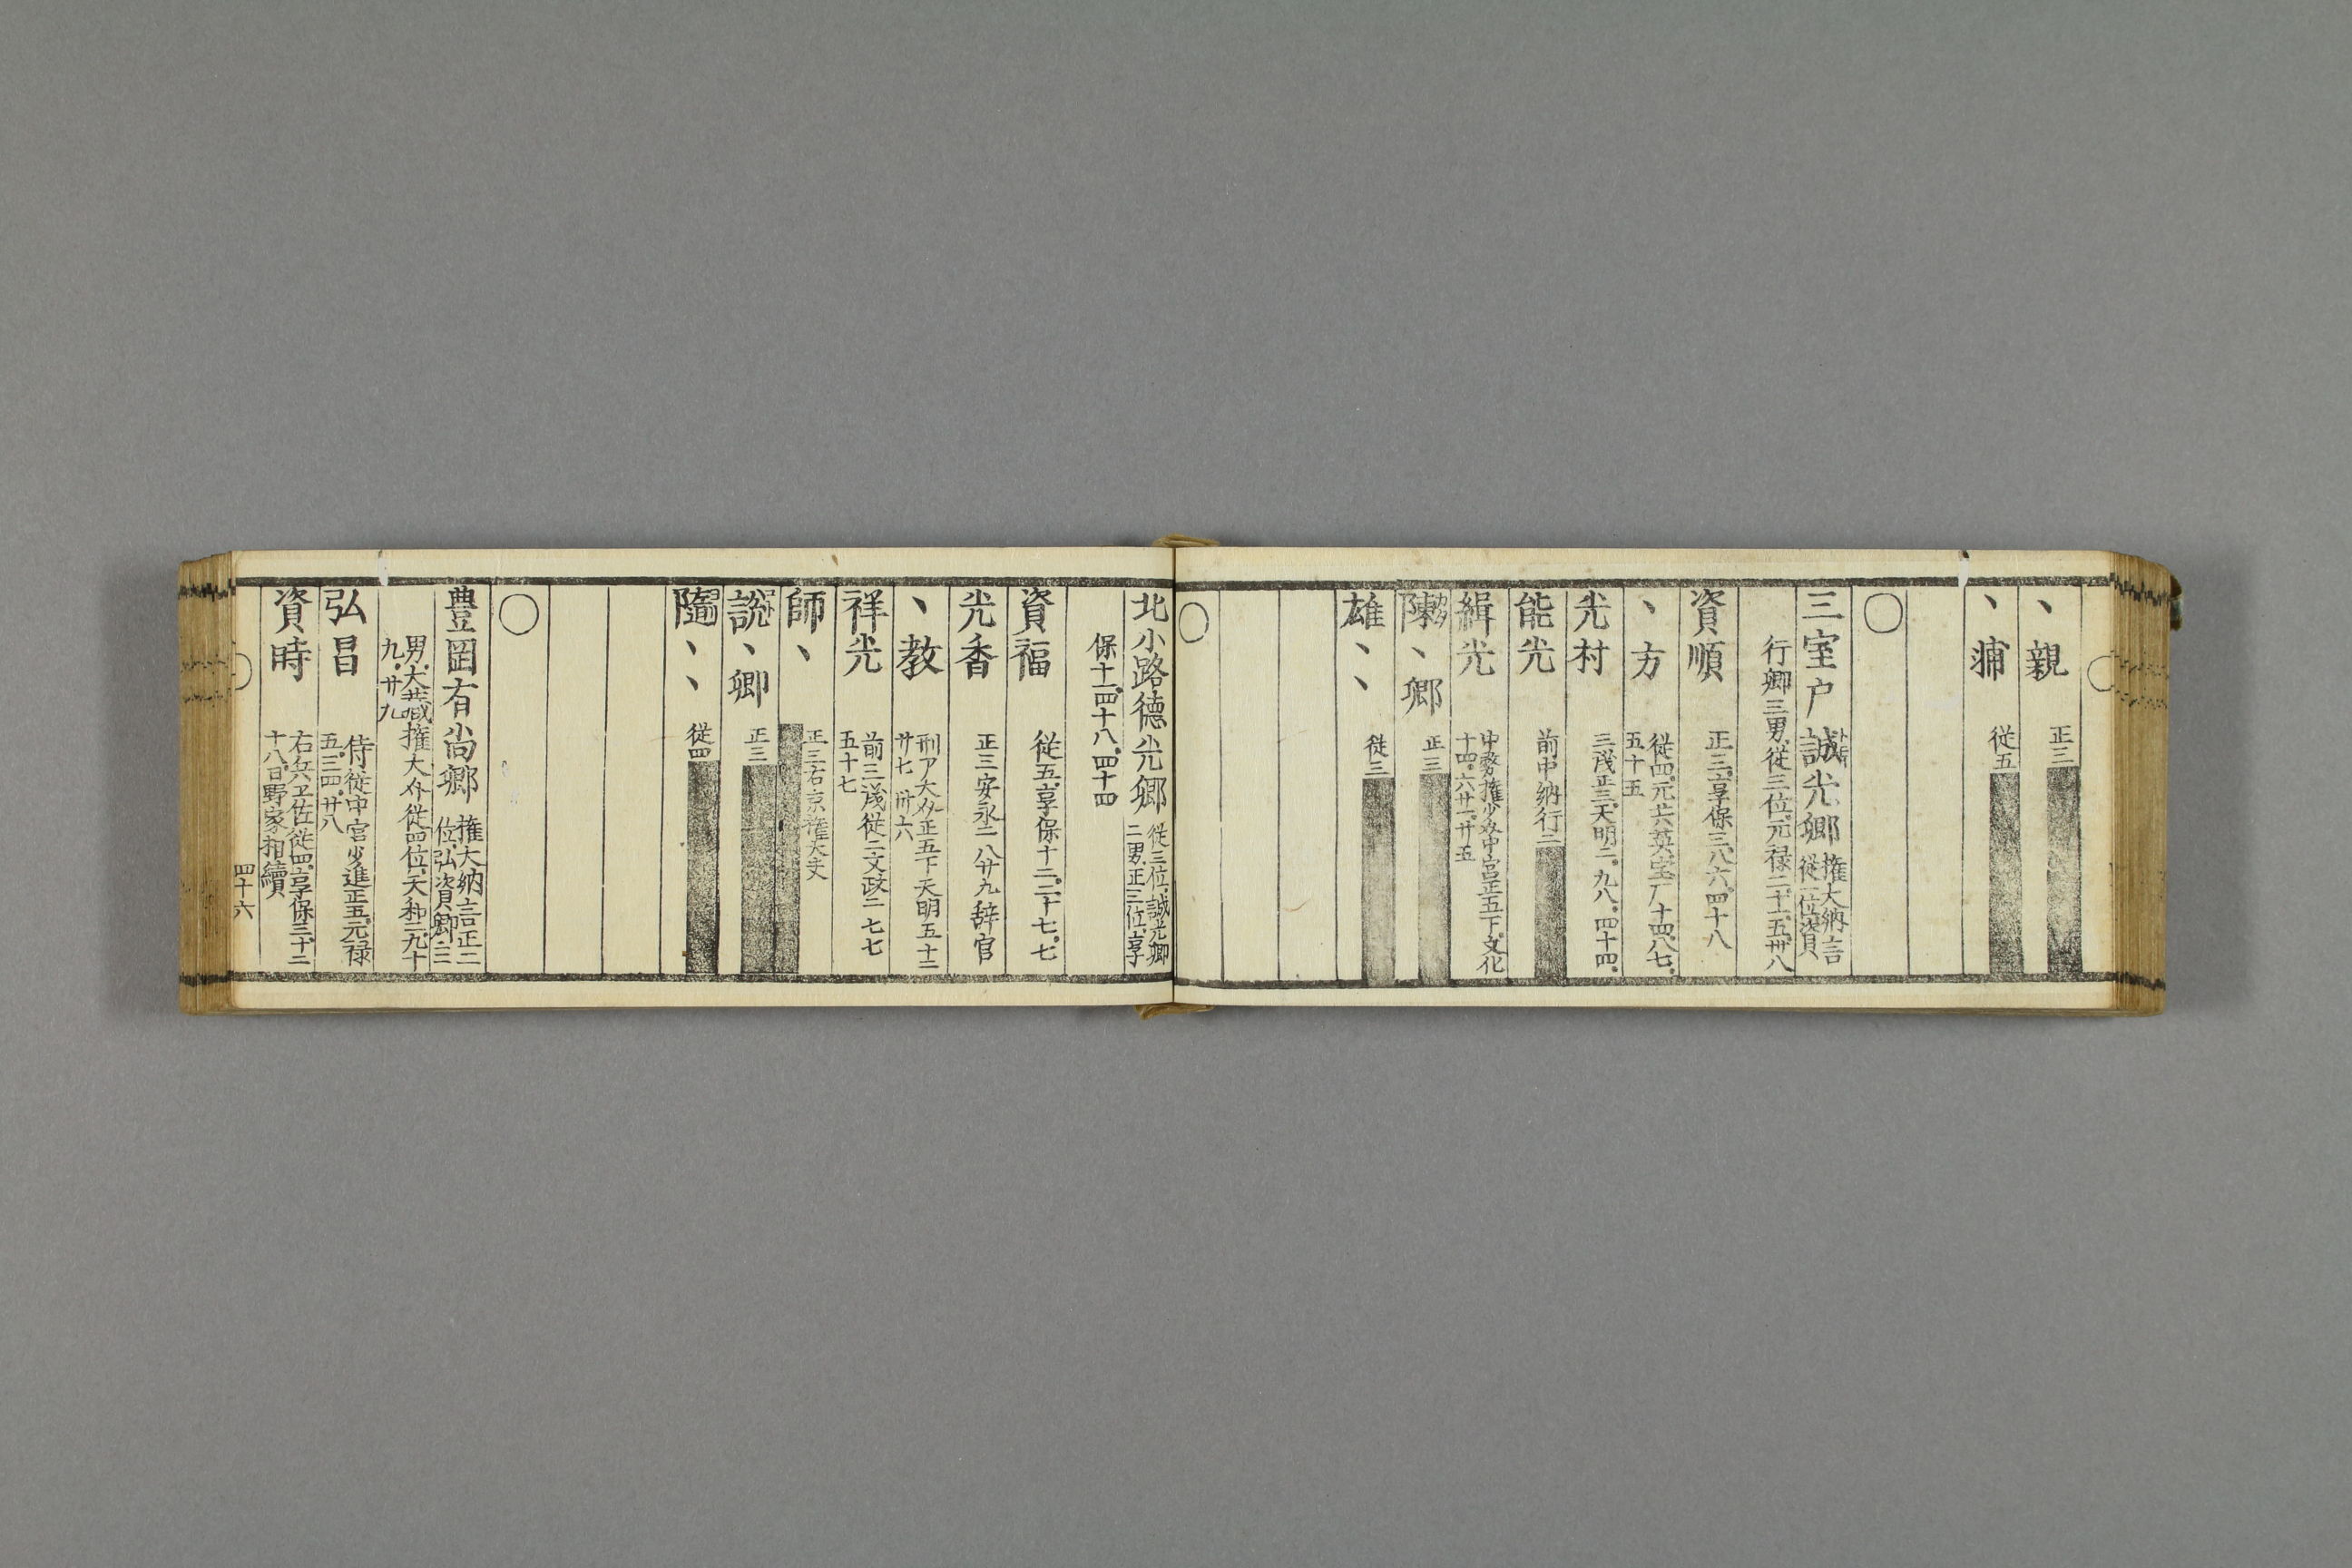 丶親 正三
丶痡 従五
三室戸誠光卿 権大納言
従一位資
行卿三男従三位元禄二十一五卅八
資順 正三享保三八六四十八
丶方 従四元共英宝厂十四八七
五十五
光村 三議正三天明二九八四十四
能光 前中納行二
緝光 中務権少輔中宮正五下文化
十四六廿一廿五
陳丶卿 正三
雄丶丶 従三
北小路徳光卿 従三位誠光卿
二男正三位享
保十一四十八四十四
資福 従五享保十二二十七七
光香 正三安永二八廿九辞官
丶教 刑ア大介正五下天明五十二
廿七卅六
祥光 前三議従二文政二七七
五十七
師丶 正三右京権大夫
説丶卿 正三
随丶丶 従四
豊岡有尚卿 権大納言正二
位弘資卿三
男大蔵権大介従四位天和二九十
九廿九
弘昌 侍従中宮少進正五元禄
五三四廿八
資時 右兵卫佐従四享保三十二
十八日野家相続
四十六